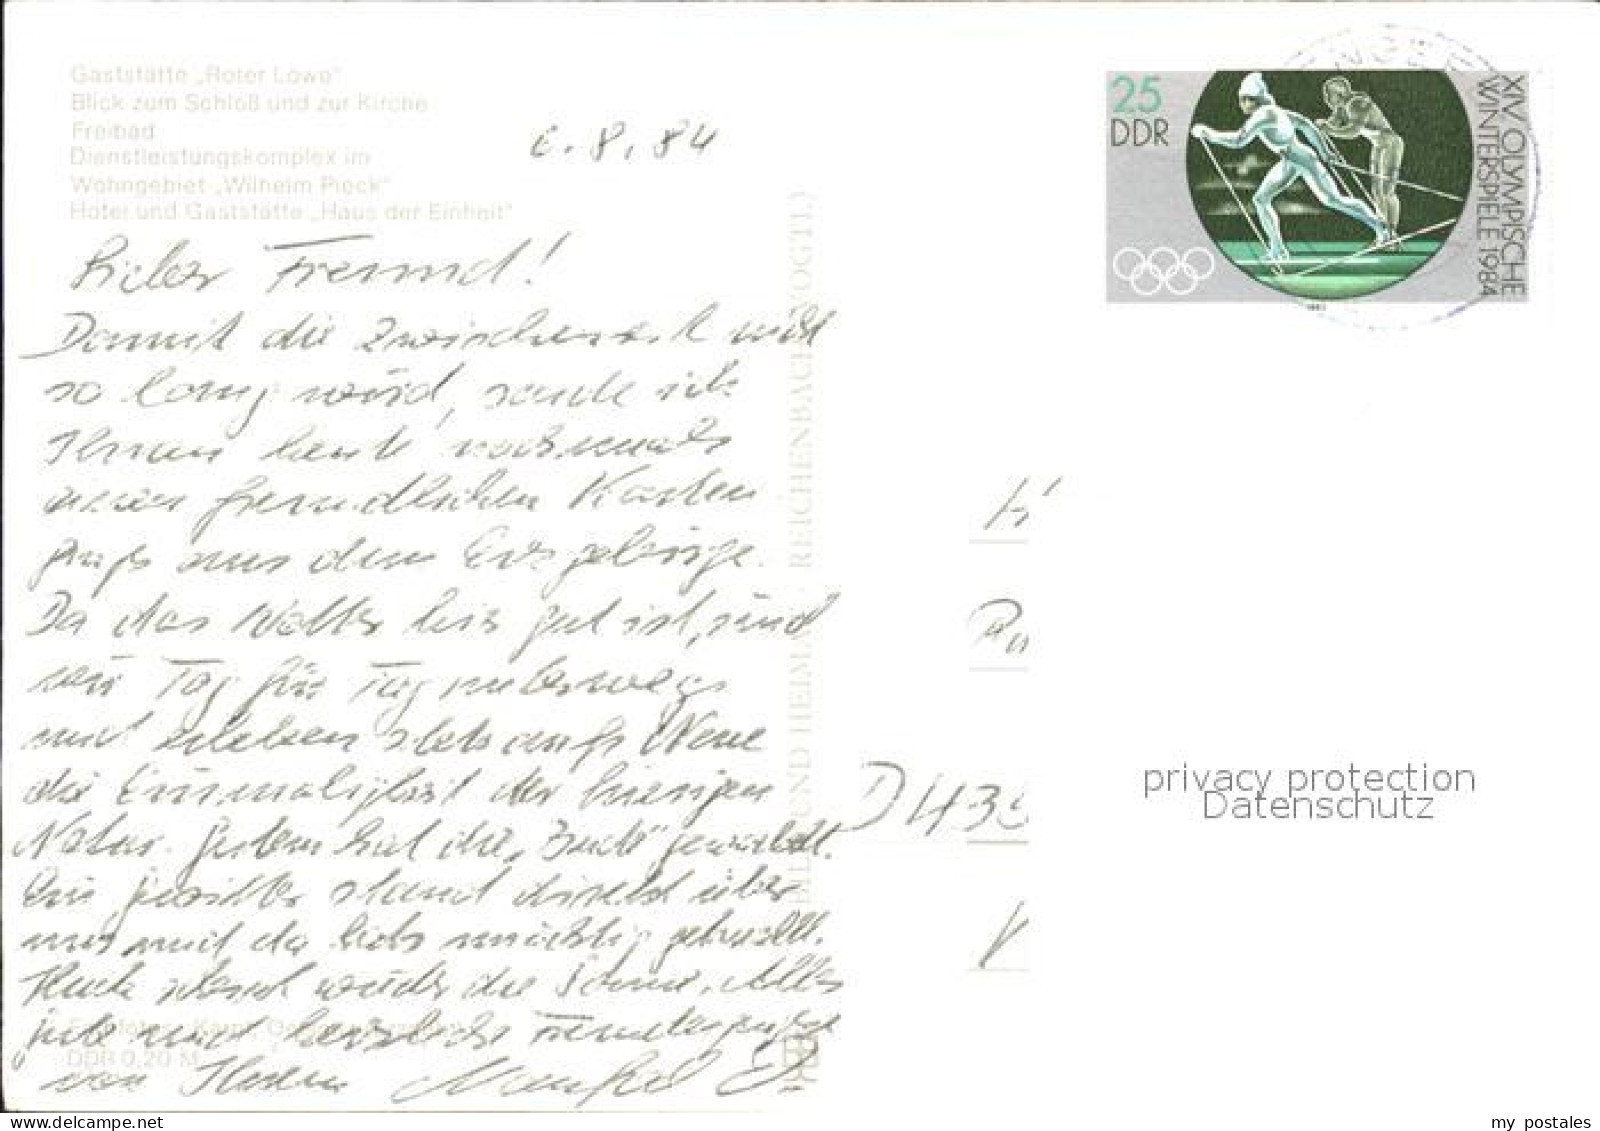 Gaststätte „Roter Löwe"
Blick zum Schloß und zur Kirche
Freibad
Dienstleistungskomplex im
Wohngebiet „Wilhelm Pieck"
Hotel und Gaststätte „Haus der Einheit"
6.8.84
Lieber Freund!
Damit die Zwischenzeit nicht
so lang wird, sende ich
Ihnen heute nochmals
einen freundlichen Karten
gruß aus dem Erzgebirge.
Da das Wetter hier gut ist, sind
wir Tag für Tag unterwegs
und erleben stets aufs Neue
die Einmaligkeit der hiesigen
Natur. Gestern hat die gewackelt.
Ein Gewitter stand direkt über
uns und da hats mächtig geknallt.
Heute scheint wieder die Sonne. Alles
gute und herzliche Freundesgrüße
von Ihrem Manfred
DDR 0,20 M
BILD UND HEIMAT REICHENBACH (VOGTL)
25
DDR
XIV. OLYMPISCHE
WINTERSPIELE 1984
H
D 43
privacy protection
Datenschutz
my postales